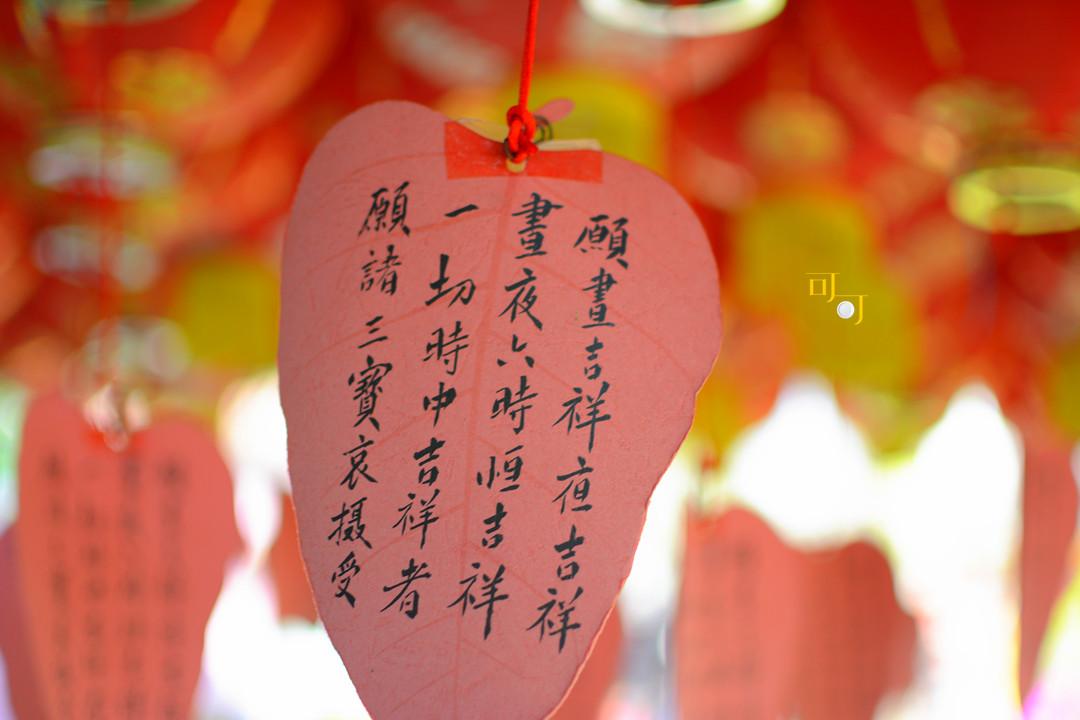 願晝吉祥夜吉祥
晝夜六時恒吉祥
一切時中吉祥者
願諸三寶哀摄受
可可